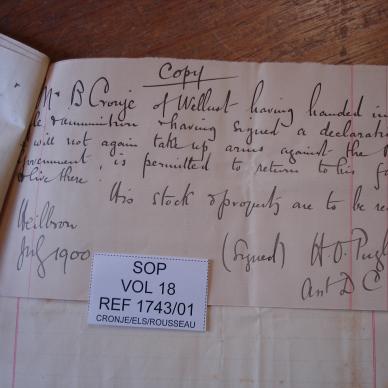 Copy
Mr B Cronje of Wellust having handed in
& ammunition & having signed a declaration
will not again take up arms against the
government, is permitted to return to his
& live there.
His stock & property are to be
Heilbron
July 1900
(Signed) H. O.
Asst D C
SOP
VOL 18
REF 1743/01
CRONJE/ELS/ROUSSEAU